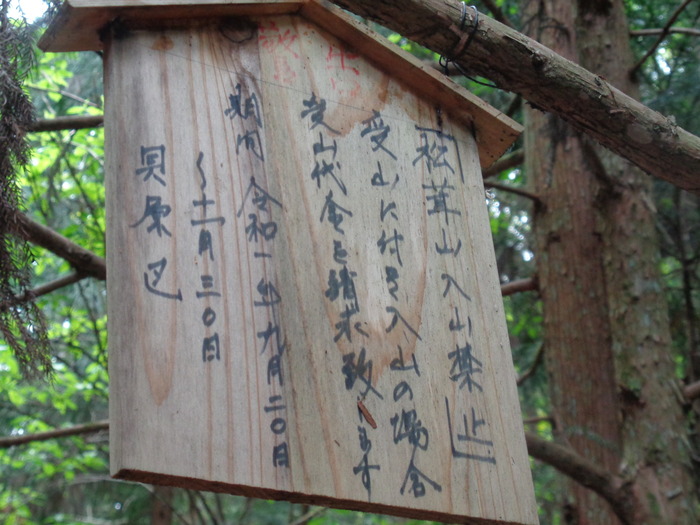 「松茸山入山禁止」
受山に付き入山の場合
山代金を請求致します
期間 令和一年九月二〇日
〜十一月三〇日
貝原